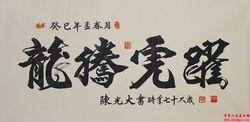 癸巳年孟春月
龍騰虎躍
陳光大書時年七十六歲